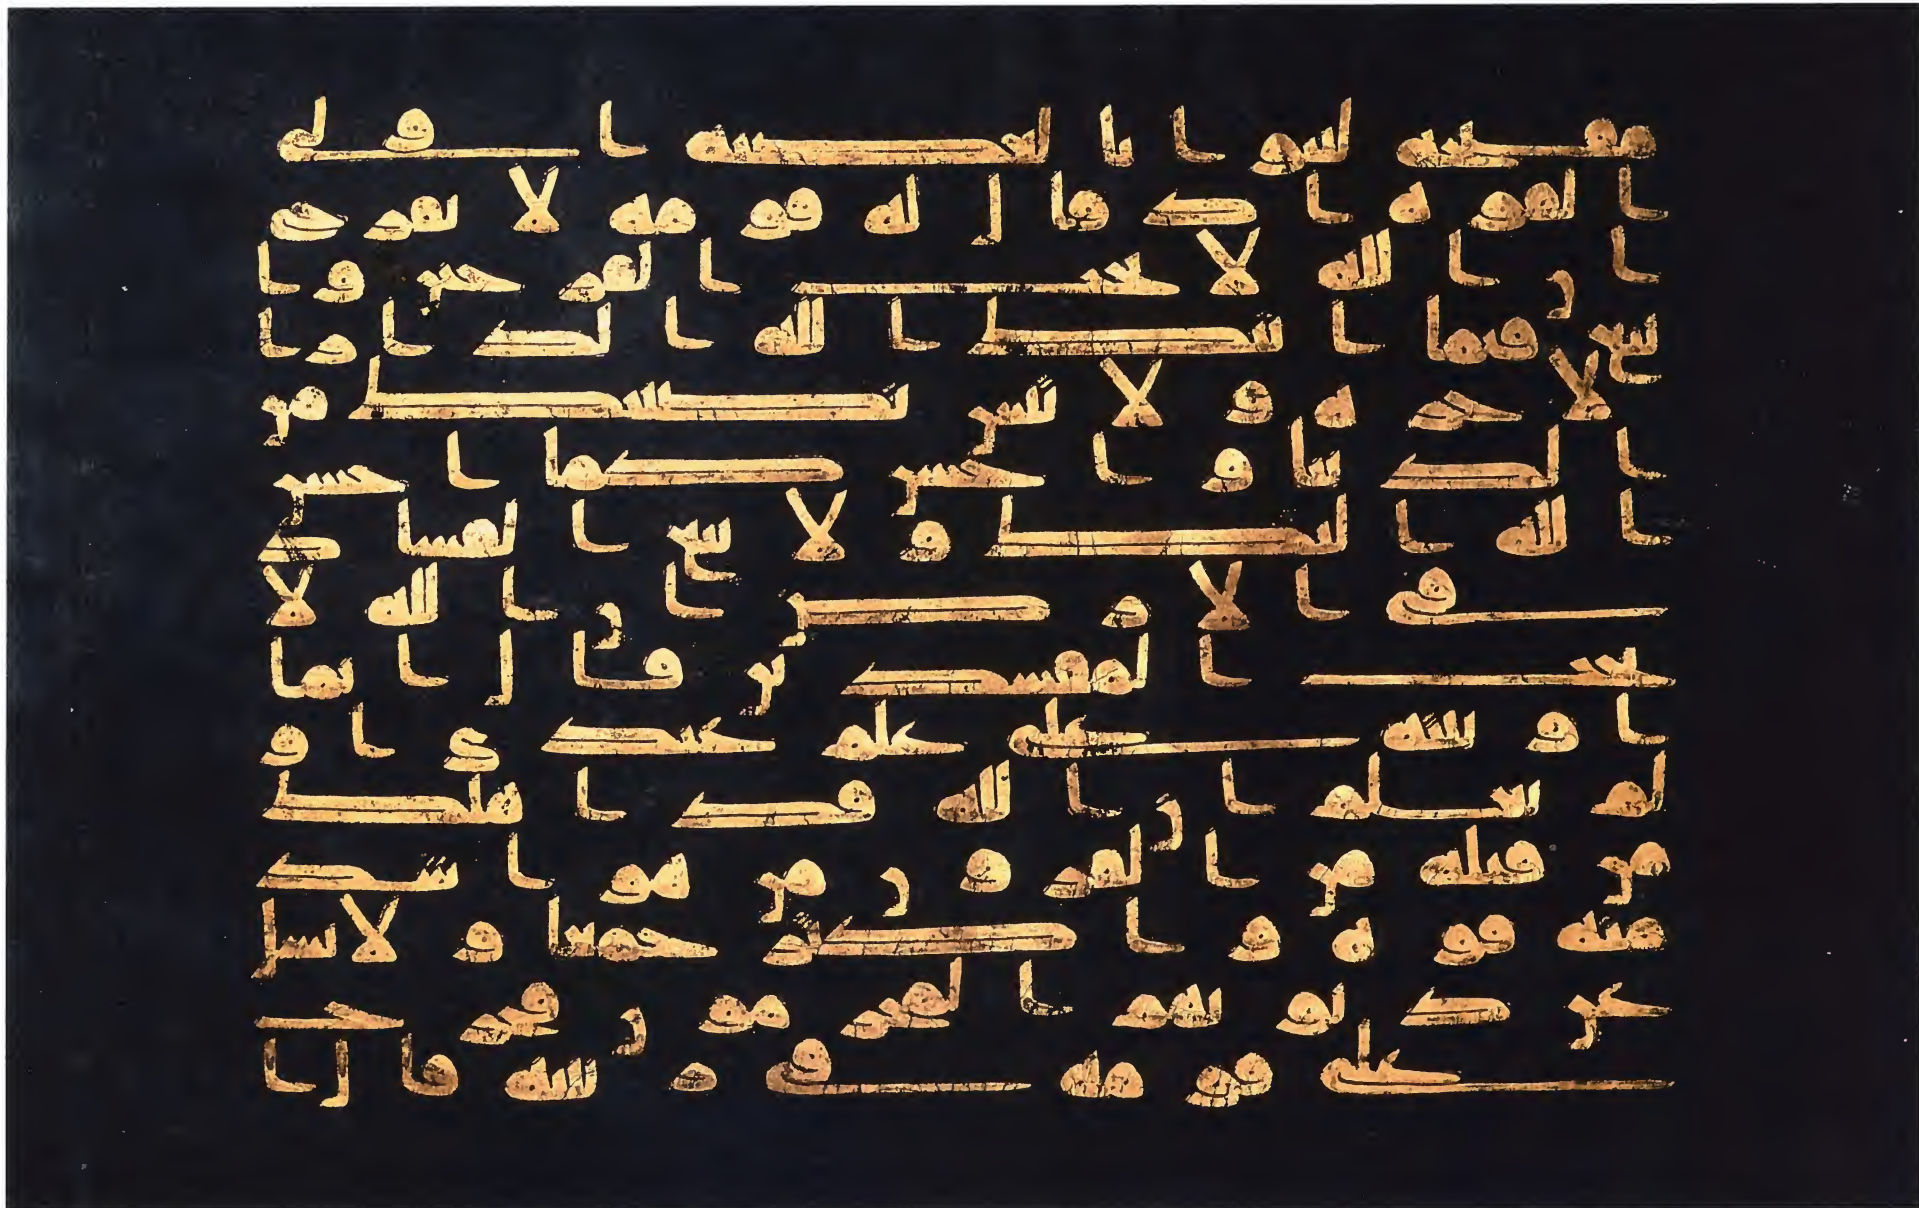 مفتحه لتنوا بالعصبة اولى
القوة اذ قال له قومه لا تفرح
ان الله لا يحب الفرحين وا
بتغ فيما اتيك الله الدار ا
لاخرة ولا تنس نصيبك من
الدنيا واحسن كما احسن
الله اليك ولا تبغ الفساد
فى الارض ان الله لا
يحب المفسدين قال انما
اوتيته على علم عندى او
لم يعلم ان الله قد اهلك
من قبله من القرون من هو اشد
منه قوة واكثر جمعا ولا يسل
عن ذنوبهم المجرمون فخرج
على قومه فى زينته قال ا